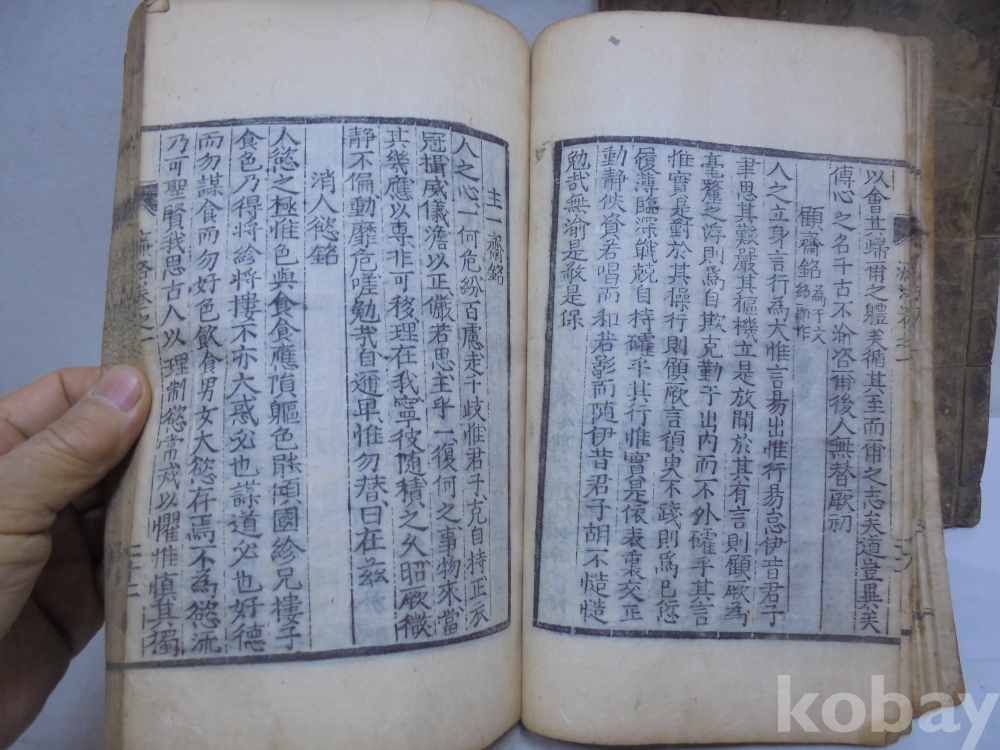 以會且歸爾之體矣循其主而爾之志矣道豈異矣
傳心之名千古不渝咨爾後人無替厥初
顧齋銘
人之立身言行爲大惟言易出惟行易怠伊昔君子
聿思其難嚴其樞機立是放閑於其有言則顧厥為
毫釐之浮則爲自欺克勤乎出內而不外確乎其言
惟實是對於其操行則顧厥言須臾不踐則爲已愆
履薄臨深戰兢自持確乎其行惟實是依表裏交正
動靜俠資若唱而和若影而随伊昔君子胡不慥慥
勉哉無渝是敬是保
主一齋銘
人之心一何危紛百慮走千歧惟君子克自持正衣
冠攝威儀澹以正儼若思主乎一復何之事物來當
其幾應以專非可移理在我寧彼随積之久昭厥微
静不偏動靡危嗟勉哉自邇卑惟勿替日在玆
消人慾銘
人慾之極惟色與食食應隕軀色能傾國紾兄樓子
食色乃得將紾將樓不亦大惑必也謀道必也好德
而勿謀食而勿好色飲食男女大慾存焉不為慾流
乃可聖賢我思古人以理制慾常戒以懼惟慎其獨